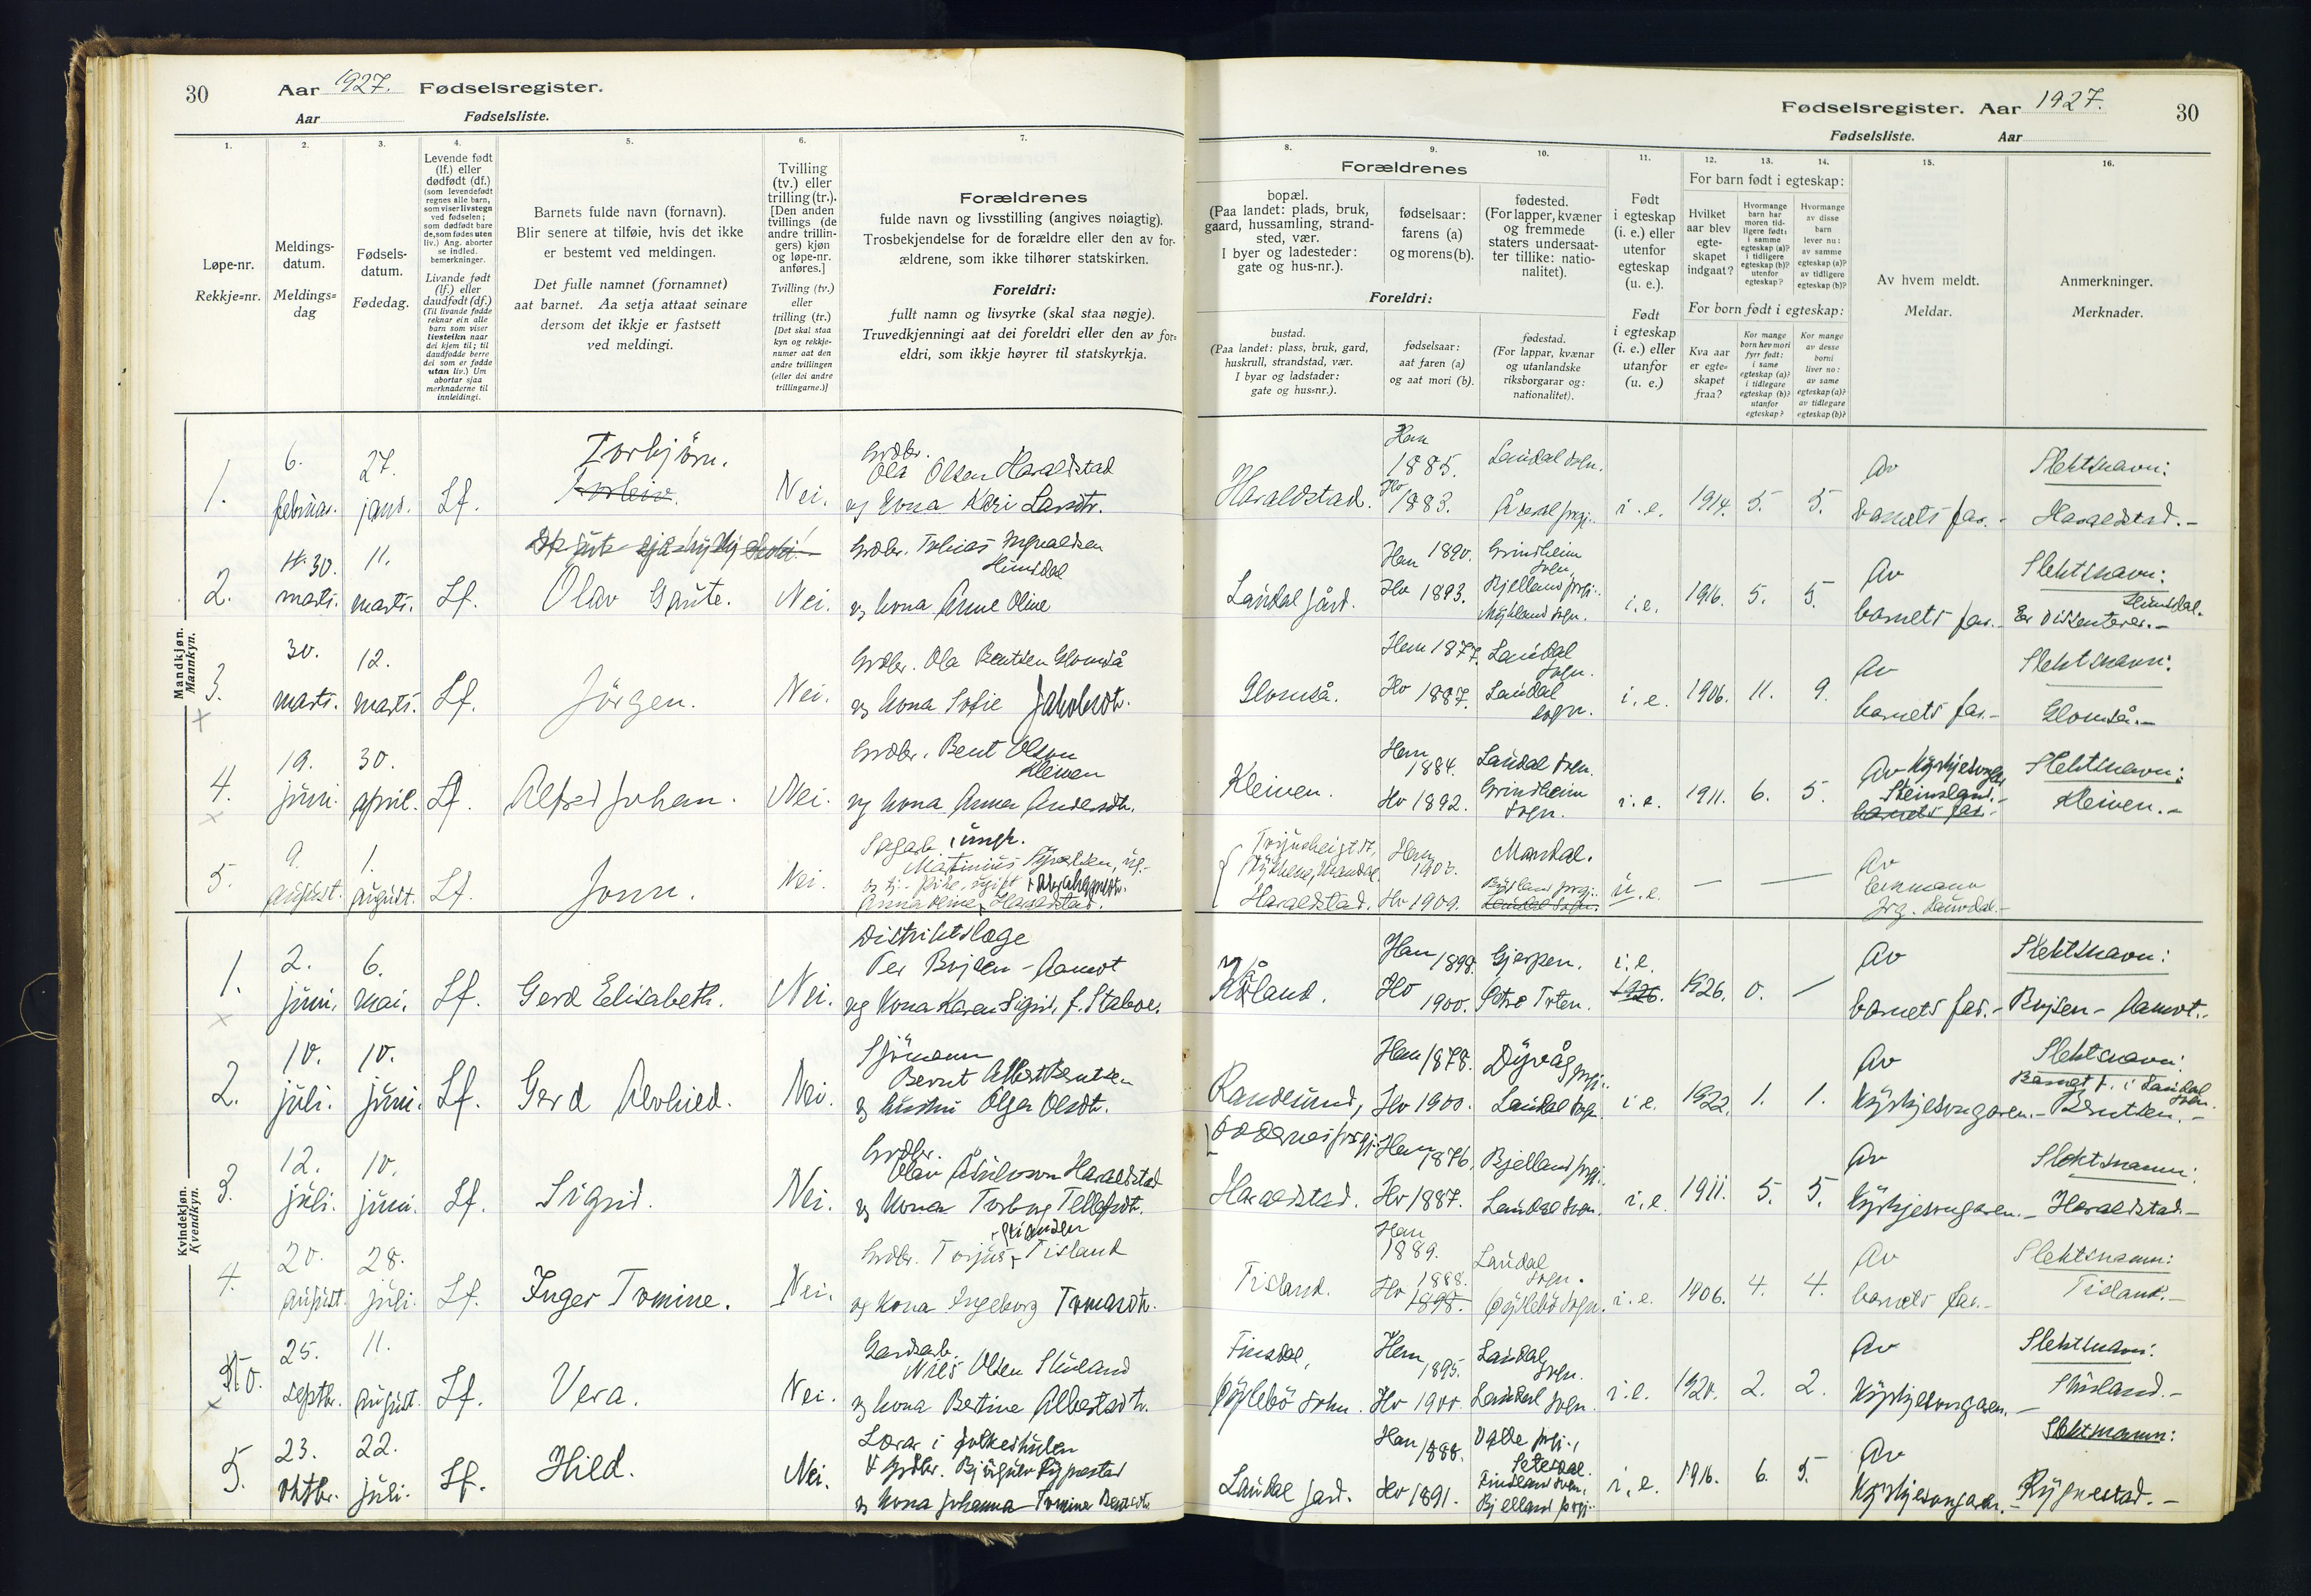 30
Aar 1927. Fødselsregister.
Aar Fødselsliste.
Fødselsregister. Aar 1927.
30
Fødselsliste. Aar
1.
Løpe-nr.
Rekkje=nr.
2.
Meldings-
datum.
Meldings=
dag
3.
Fødsels-
datum.
Fødedag.
4.
Levende født
(lf.) eller
dødfødt (df.)
(som levendefødt
regnes alle barn,
som viser livstegn
ved fødselen;
som dødfødt bare
de, som fødes uten
liv.) Ang. aborter
se indled.
bemerkninger.
Livande født
(lf.) eller
daudfødt (df.)
(Til livande fødde
reknar ein alle
barn som viser
livsteikn naar
dei kjem til; til
daudfødde berre
dei som er fødde
utan liv.) Um
abortar sjaa
merknaderne til
innleidingi.
5.
Barnets fulde navn (fornavn).
Blir senere at tilføie, hvis det ikke
er bestemt ved meldingen.
Det fulle namnet (fornamnet)
aat barnet. Aa setja attaat seinare
dersom det ikkje er fastsett
ved meldingi.
6.
Tvilling
(tv.) eller
trilling (tr.).
[Den anden
tvillings (de
andre trillin-
gers) kjøn
og løpe-nr.
anføres.]
Tvilling (tv.)
eller
trilling (tr.)
[Det skal staa
kyn og rekkje-
numer aat den
andre tvillingen
(eller dei andre
trillingarne.)]
7.
Forældrenes
fulde navn og livsstilling (angives nøiagtig).
Trosbekjendelse for de forældre eller den av for-
ældrene, som ikke tilhører statskirken.
Foreldri:
fullt namn og livsyrke (skal staa nøgje).
Truvedkjenningi aat dei foreldri eller den av for=
eldri, som ikkje høyrer til statskyrkja.
Forældrenes
8.
bopæl.
(Paa landet: plads, bruk,
gaard, hussamling, strand-
sted, vær.
I byer og ladesteder:
gate og hus-nr.).
9.
fødselsaar:
farens (a)
og morens (b).
10.
fødested.
(For lapper, kvæner
og fremmede
staters undersaat-
ter tillike: natio-
nalitet).
Foreldri:
bustad.
(Paa landet: plass, bruk, gard,
huskrull, strandstad, vær.
I byar og ladstader:
gate og hus=nr.).
fødselsaar:
aat faren (a)
og aat mori (b).
fødestad.
(For lappar, kvænar
og utanlandske
riksborgarar og:
nationalitet).
11.
Født
i egteskap
(i. e.) eller
utenfor
egteskap
(u. e.).
Født
i egteskap
(i. e.) eller
utanfor
(u. e.)
12. 13. 14.
For barn født i egteskap:
Hvilket
aar blev
egte-
skapet
indgaat?
Hvormange
barn har
moren tid-
ligere født:
i samme
egteskap (a)?
i tidligere
egteskap (b)?
utenfor
egteskap?
Hvormange
av disse
barn
lever nu:
av samme
egteskap (a)?
av tidligere
egteskap (b)?
For born født i egteskap:
Kva aar
er egte=
skapet
fraa?
Kor mange
born hev mori
fyrr født:
i same
egteskap (a)?
i tidlegare
egteskap (b)?
utanfor
egteskap?
Kor mange
av desse
borni
liver no:
av same
egteskap (a)?
av tidlegare
egteskap (b)?
15.
Av hvem meldt.
Meldar.
16.
Anmerkninger.
Merknader.
Mandkjøn.
Mannkyn.
1. 6. februar. 27. janr. Lf. Torbjörn. Torleiv. Nei.
Grdbr.
Ola Olsen Haraldstad
og kona Kari Larsdtr.
Haraldstad. Han 1885. Hv 1883. Laudal sogn. Åseral prgj. i. e. 1914. 5. 5. Av barnets far. Slektsnavn: Haraldstad.
2. 30. marts. 11. marts. Lf. Olav Gaute. Nei.
Grdbr. Tobias Ingvaldsen
Hunsdal
og kona Anne Oline
Laudal gård. Han 1890. Hv 1893. Grindheim sogn, Bjelland prgj. i. e. 1916. 5. 5. Av barnets far. Slektsnavn: Hunsdal. Er dissenterer.
3. 30. marts. 12. marts. Lf. Jörgen. Nei.
Grdbr. Ola Bentsen Glomså
og kona Sofie Jakobsdtr.
Glomså. Han 1877. Hv 1887. Laudal sogn. Laudal sogn. i. e. 1906. 11. 9. Av barnets far. Slektsnavn: Glomså.
4. 19. juni. 30. april. Lf. Alfred Johan. Nei.
Grdbr. Bent Olsen
Kleiven
og kona Anna Andersdtr.
Kleiven. Han 1884. Hv 1892. Laudal sogn. Grindheim sogn. i. e. 1911. 6. 5. Av Kyrkjesongar Steinsland. barnets far. Slektsnavn: Kleiven.
5. 9. august. 1. august. Lf. Jonn. Nei.
Sagarb. ungk.
Haraldstad.
Haraldstad. Han 1903. Hv 1909. Mandal. Bjelland prgj. Laudal sogn. u. e. — — Av
Kvindekjøn.
Kvendkyn.
1. 2. juni. 6. mai. Lf. Gerd Elisabeth. Nei.
Distriktslæge
Per Bojsen - Aamot
og kona Karen Sigrid, f. Stabo.
Kåland. Han 1898. Hv 1900. Gjerpen. Østre Toten. i. e. 1926. 1926. 0. — Av barnets far. Slektsnavn: Bojsen - Aamot.
2. 10. juli. 10. juni. Lf. Gerd Alvhild. Nei.
Sjömann
Bernt Albert Berntsen
og hustru Olga Olsdtr.
Randesund, Oddernes prgj. Han 1878. Hv 1900. Dypvåg prgj. Laudal sogn. i. e. 1922. 1. 1. Av Kyrkjesongaren. Slektsnavn: Barnet f. i Laudal sogn. Berntsen.
3. 12. juli. 10. juni. Lf. Sigrid. Nei.
Grdbr.
Olav Åsulvson Haraldstad
og kona Torborg Tellefsdtr.
Haraldstad. Han 1876. Hv 1887. Bjelland prgj. Laudal sogn. i. e. 1911. 5. 5. Av Kyrkjesongaren. Slektsnamn: Haraldstad.
4. 20. august. 28. juli. Lf. Inger Tomine. Nei.
Grdbr. Torjus Tisland
og kona Ingeborg Tomasdtr.
Tisland. Han 1889. Hv 1888. 1898. Laudal sogn. Øyslebö sogn. i. e. 1906. 4. 4. Av barnets far. Slektsnamn: Tisland.
25. septbr. 11. august. Lf. Vera. Nei.
Gardsarb.
Nils Olsen Stusland
og kona Bertine Albertsdtr.
Finsdal, Øyslebö sokn. Han 1895. Hv 1900. Laudal sogn. Laudal sogn. i. e. 1920. 2. 2. Av Kyrkjesongaren. Slektsnavn: Stusland.
5. 23. oktbr. 22. juli. Lf. Hild. Nei.
Lærar i folkeskulen
& Grdbr. Bjørgulv Rygnestad
og kona Johanna Tomine Bentsdtr.
Laudal gard. Han 1888. Hv 1891. Valle prgj., Setesdal. Finsland sogn, Bjelland prgj. i. e. 1916. 6. 5. Av Kyrkjesongaren. Slektsnamn: Rygnestad.